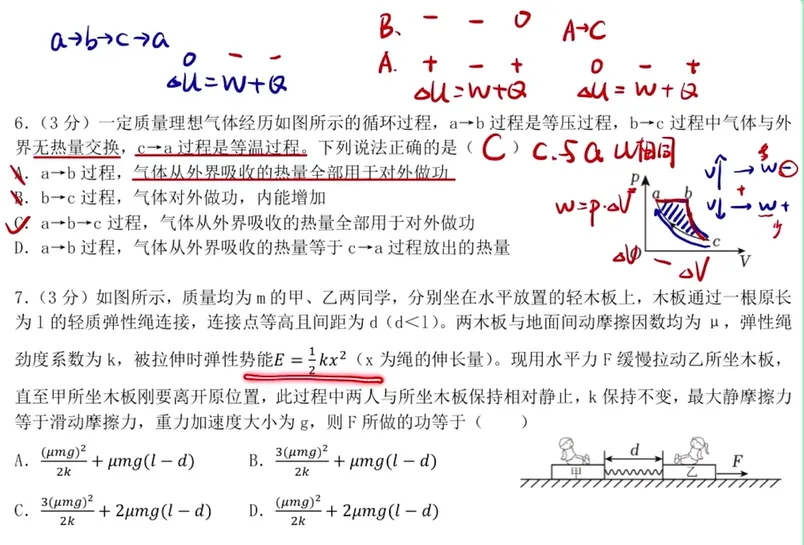 a→b→c→a
0 - -
ΔU=W+Q
B、 - - 0
A→C
A. + - +
0 - +
ΔU=W+Q
ΔU=W+Q
6.（3 分）一定质量理想气体经历如图所示的循环过程，a→b 过程是等压过程，b→c 过程中气体与外
界无热量交换，c→a 过程是等温过程。下列说法正确的是（ C ）
C.与a U相同
A. a→b 过程，气体从外界吸收的热量全部用于对外做功
B. b→c 过程，气体对外做功，内能增加
C. a→b→c 过程，气体从外界吸收的热量全部用于对外做功
D. a→b 过程，气体从外界吸收的热量等于 c→a 过程放出的热量
W=P·ΔV
p
a b
c
O
V
V↑ → W - 多
+
V↓ → W + 少
ΔV - ΔV
7.（3 分）如图所示，质量均为 m 的甲、乙两同学，分别坐在水平放置的轻木板上，木板通过一根原长
为 l 的轻质弹性绳连接，连接点等高且间距为 d（d＜l）。两木板与地面间动摩擦因数均为 μ，弹性绳
劲度系数为 k，被拉伸时弹性势能E = \frac{1}{2}kx²（x 为绳的伸长量）。现用水平力 F 缓慢拉动乙所坐木板，
直至甲所坐木板刚要离开原位置，此过程中两人与所坐木板保持相对静止，k 保持不变，最大静摩擦力
等于滑动摩擦力，重力加速度大小为 g，则 F 所做的功等于（ ）
A. \frac{(μmg)²}{2k} + μmg(l − d) B. \frac{3(μmg)²}{2k} + μmg(l − d)
C. \frac{3(μmg)²}{2k} + 2μmg(l − d) D. \frac{(μmg)²}{2k} + 2μmg(l − d)
d
甲 乙 F